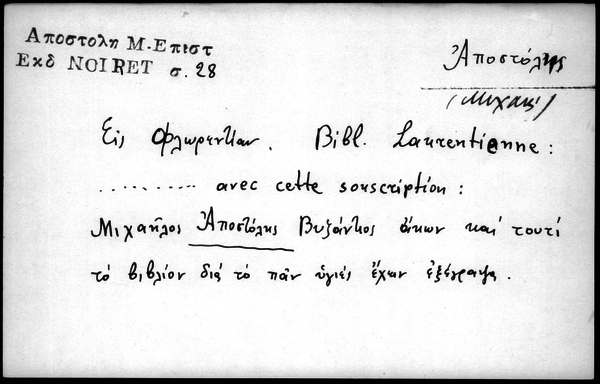 Αποστολη Μ-Επιστ
Εκδ NOIRET σ. 28
Ἀποστόλης
(Μιχαήλ)
Εἰς Φλωρεντίαν. Bibl. Laurentienne :
.......... avec cette souscription :
Μιχαῆλος Ἀποστόλης Βυζάντιος οἰκῶν καὶ τουτὶ
τὸ βιβλίον διὰ τὸ πᾶν ὑγιές ἔχων ἐξέγραψε.